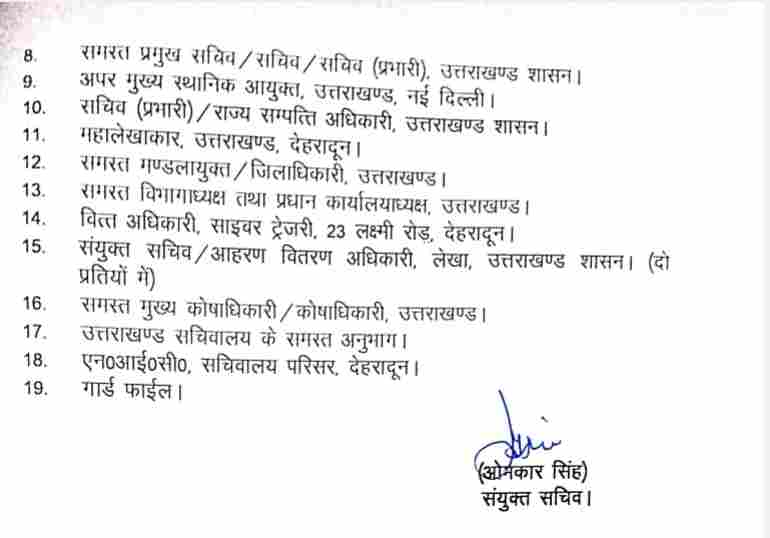 8. समस्त प्रमुख सचिव/सचिव/सचिव (प्रभारी), उत्तराखण्ड शासन।
9. अपर मुख्य स्थानिक आयुक्त, उत्तराखण्ड, नई दिल्ली।
10. सचिव (प्रभारी)/राज्य सम्पत्ति अधिकारी, उत्तराखण्ड शासन।
11. महालेखाकार, उत्तराखण्ड, देहरादून।
12. समस्त मण्डलायुक्त/जिलाधिकारी, उत्तराखण्ड।
13. समस्त विभागाध्यक्ष तथा प्रधान कार्यालयाध्यक्ष, उत्तराखण्ड।
14. वित्त अधिकारी, साइवर ट्रेजरी, 23 लक्ष्मी रोड़, देहरादून।
15. संयुक्त सचिव/आहरण वितरण अधिकारी, लेखा, उत्तराखण्ड शासन। (दो
प्रतियों में)
16. समस्त मुख्य कोषाधिकारी/कोषाधिकारी, उत्तराखण्ड।
17. उत्तराखण्ड सचिवालय के समस्त अनुभाग।
18. एन0आई0सी0, सचिवालय परिसर, देहरादून।
19. गार्ड फाईल।
(ओमकार सिंह)
संयुक्त सचिव।